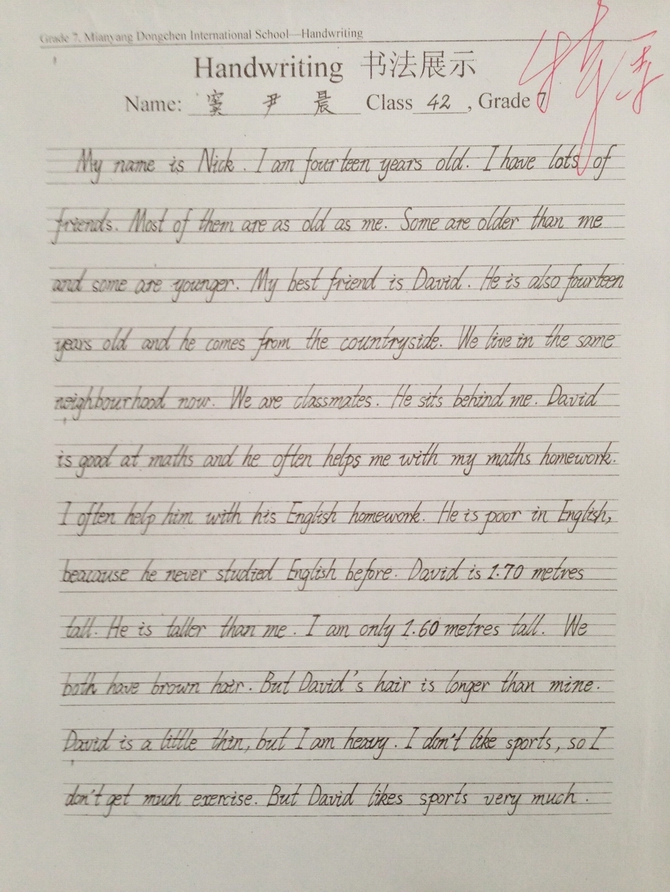 Grade 7, Mianyang Dongchen International School—Handwriting
Handwriting 书法展示
Name: 窦 尹 晨 Class 42, Grade 7
My name is Nick. I am fourteen years old. I have lots of
friends. Most of them are as old as me. Some are older than me
and some are younger. My best friend is David. He is also fourteen
years old and he comes from the countryside. We live in the same
neighbourhood now. We are classmates. He sits behind me. David
is good at maths and he often helps me with my maths homework.
I often help him with his English homework. He is poor in English,
beacause he never studied English before. David is 1.70 metres
tall. He is taller than me. I am only 1.60 metres tall. We
both have brown hair. But David's hair is longer than mine.
David is a little thin, but I am heavy. I don't like sports, so I
don't get much exercise. But David likes sports very much.